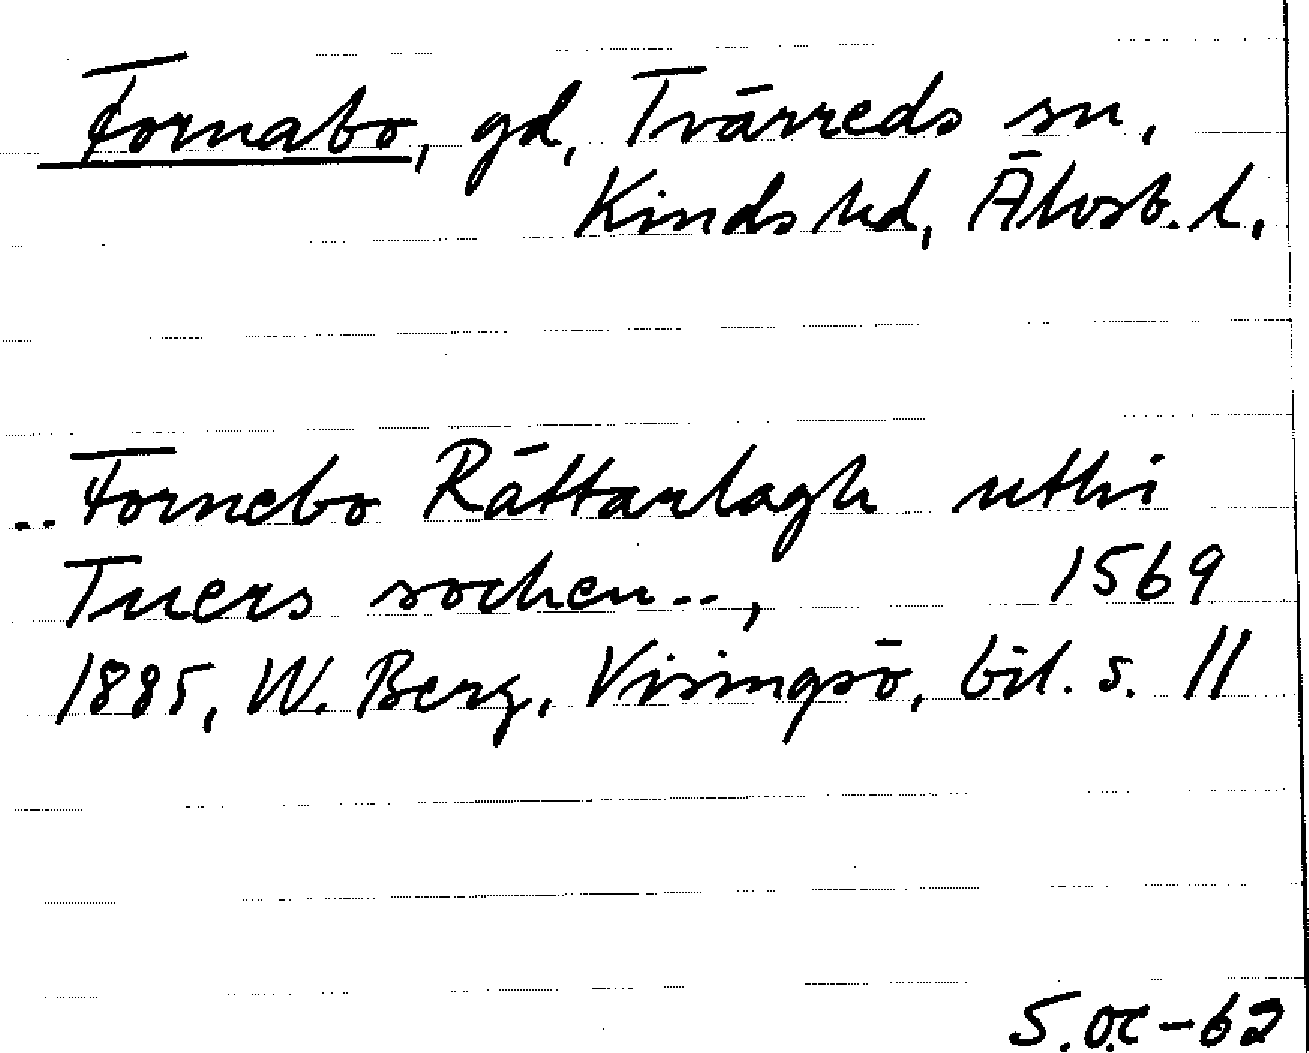 Fornabo, gd, Tvärreds sn,
Kinds hd, Älvsb. l.
.. Fornebo Rättarlagh uthi
Tuers sochen..,   1569
1885, W. Berg, Visingsö, bil. s. 11
S.O.C-62